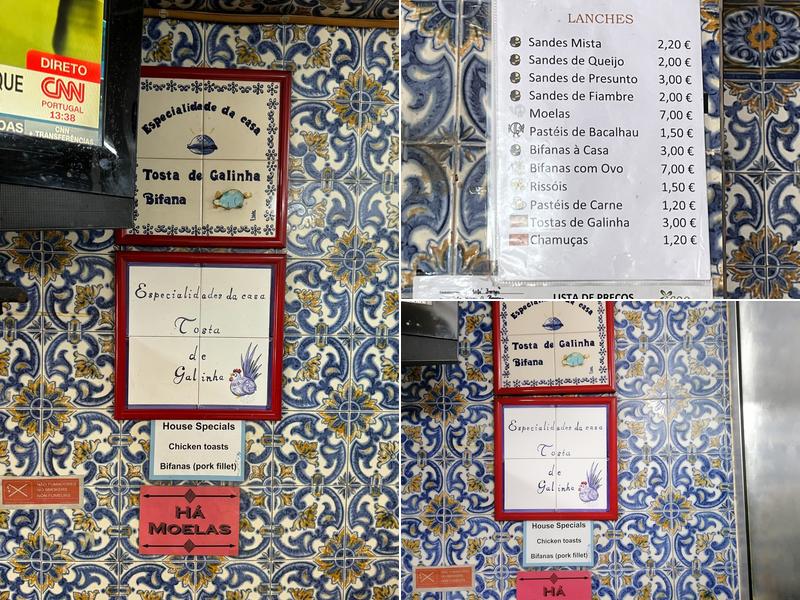 QUE
DIRETO
CNN
PORTUGAL
13:38
CNN
+ TRANSFERÊNCIAS
Especialidade da casa
Tosta de Galinha
Bifana
Especialidades da casa
Tosta
de
Galinha
House Specials
Chicken toasts
Bifanas (pork fillet)
NÃO FUMADORES
NO SMOKERS
NON FUMEURS
HÁ
MOELAS
LANCHES
Sandes Mista 2,20 €
Sandes de Queijo 2,00 €
Sandes de Presunto 3,00 €
Sandes de Fiambre 2,00 €
Moelas 7,00 €
Pastéis de Bacalhau 1,50 €
Bifanas à Casa 3,00 €
Bifanas com Ovo 7,00 €
Rissóis 1,50 €
Pastéis de Carne 1,20 €
Tostas de Galinha 3,00 €
Chamuças 1,20 €
LISTA DE PREÇOS
Especialidade da casa
Tosta de Galinha
Bifana
Especialidades da casa
Tosta
de
Galinha
House Specials
Chicken toasts
Bifanas (pork fillet)
HÁ